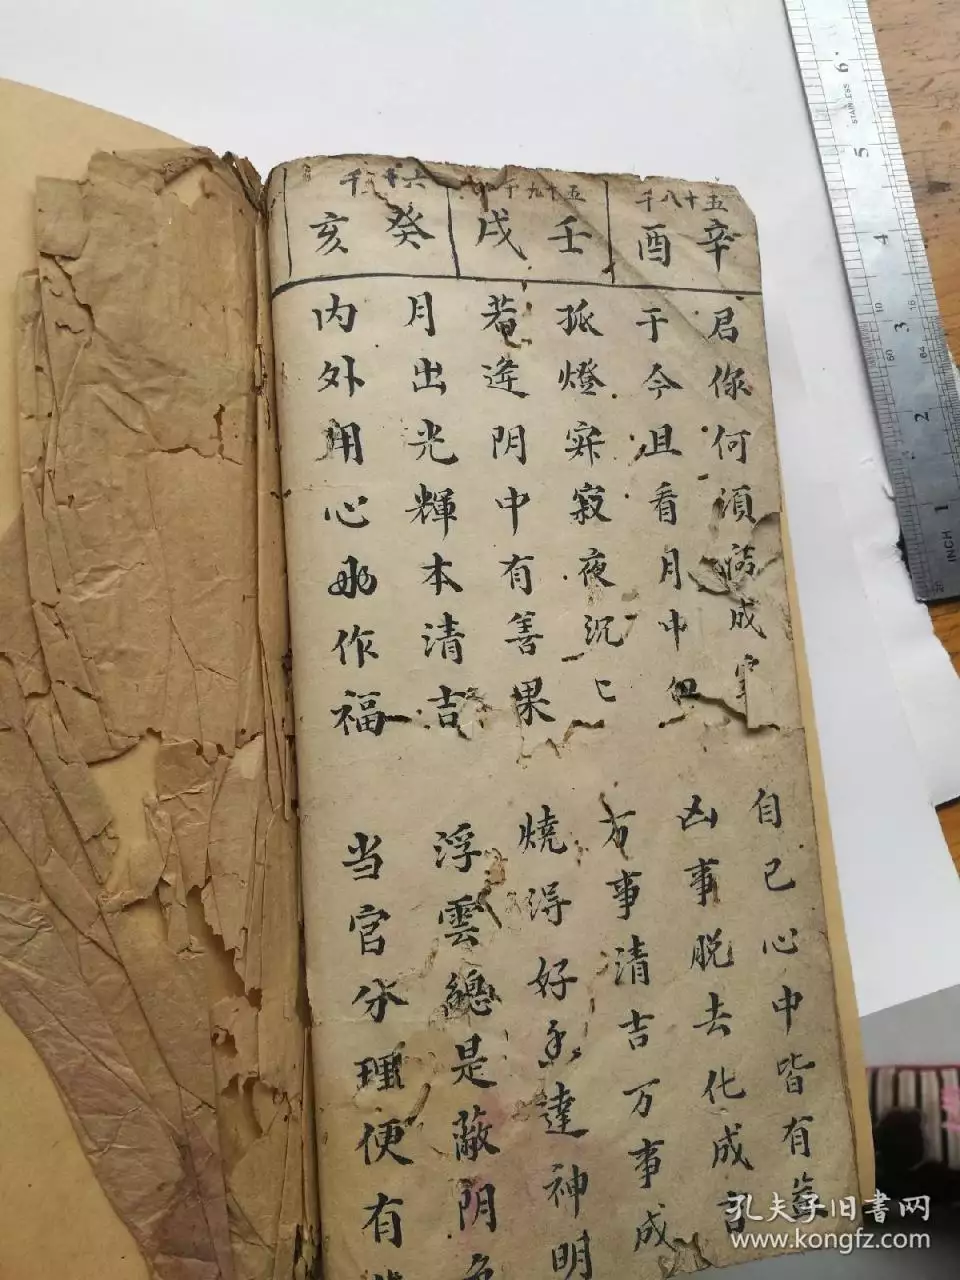 五十八千
辛酉
君你何須
成
自己心中皆有
于今且看月中
凶事脱去化成吉
五十九千
壬戌
孤燈寂夜沉匕
万事清吉万事成
若逢阴中有善果
燒得好香達神明
六十千
癸亥
月出光輝本清吉
浮雲總是蔽阴色
内外用心再作福
当官分理便有
6
5
4
3
2
1
STAINLESS
INCH
孔夫子旧书网
www.kongfz.com